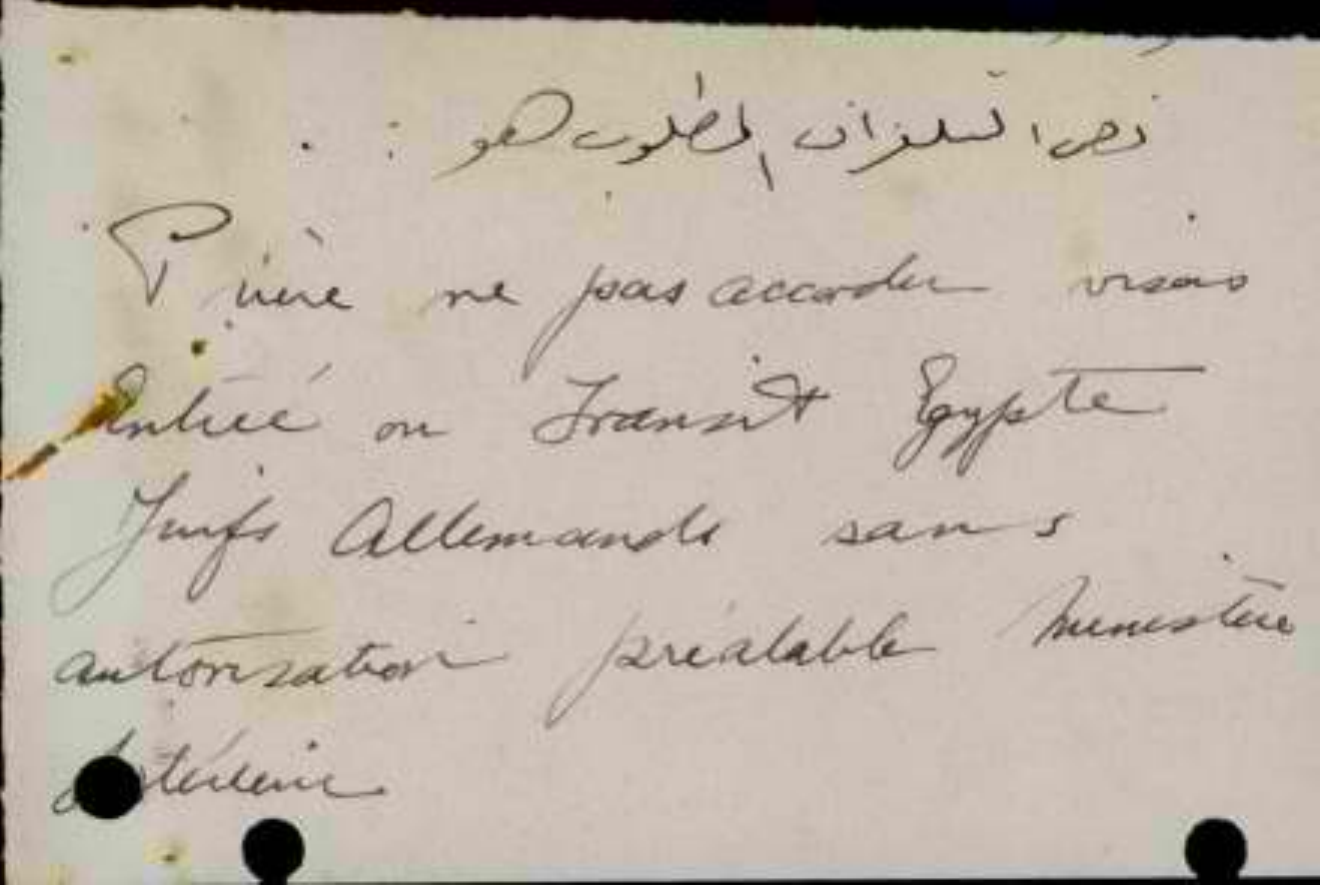 نص التلغراف المطلوب هو :
Prière ne pas accorder visas
Entrée ou Transit Egypte
Juifs Allemands sans
autorisation préalable Ministère
Intérieur